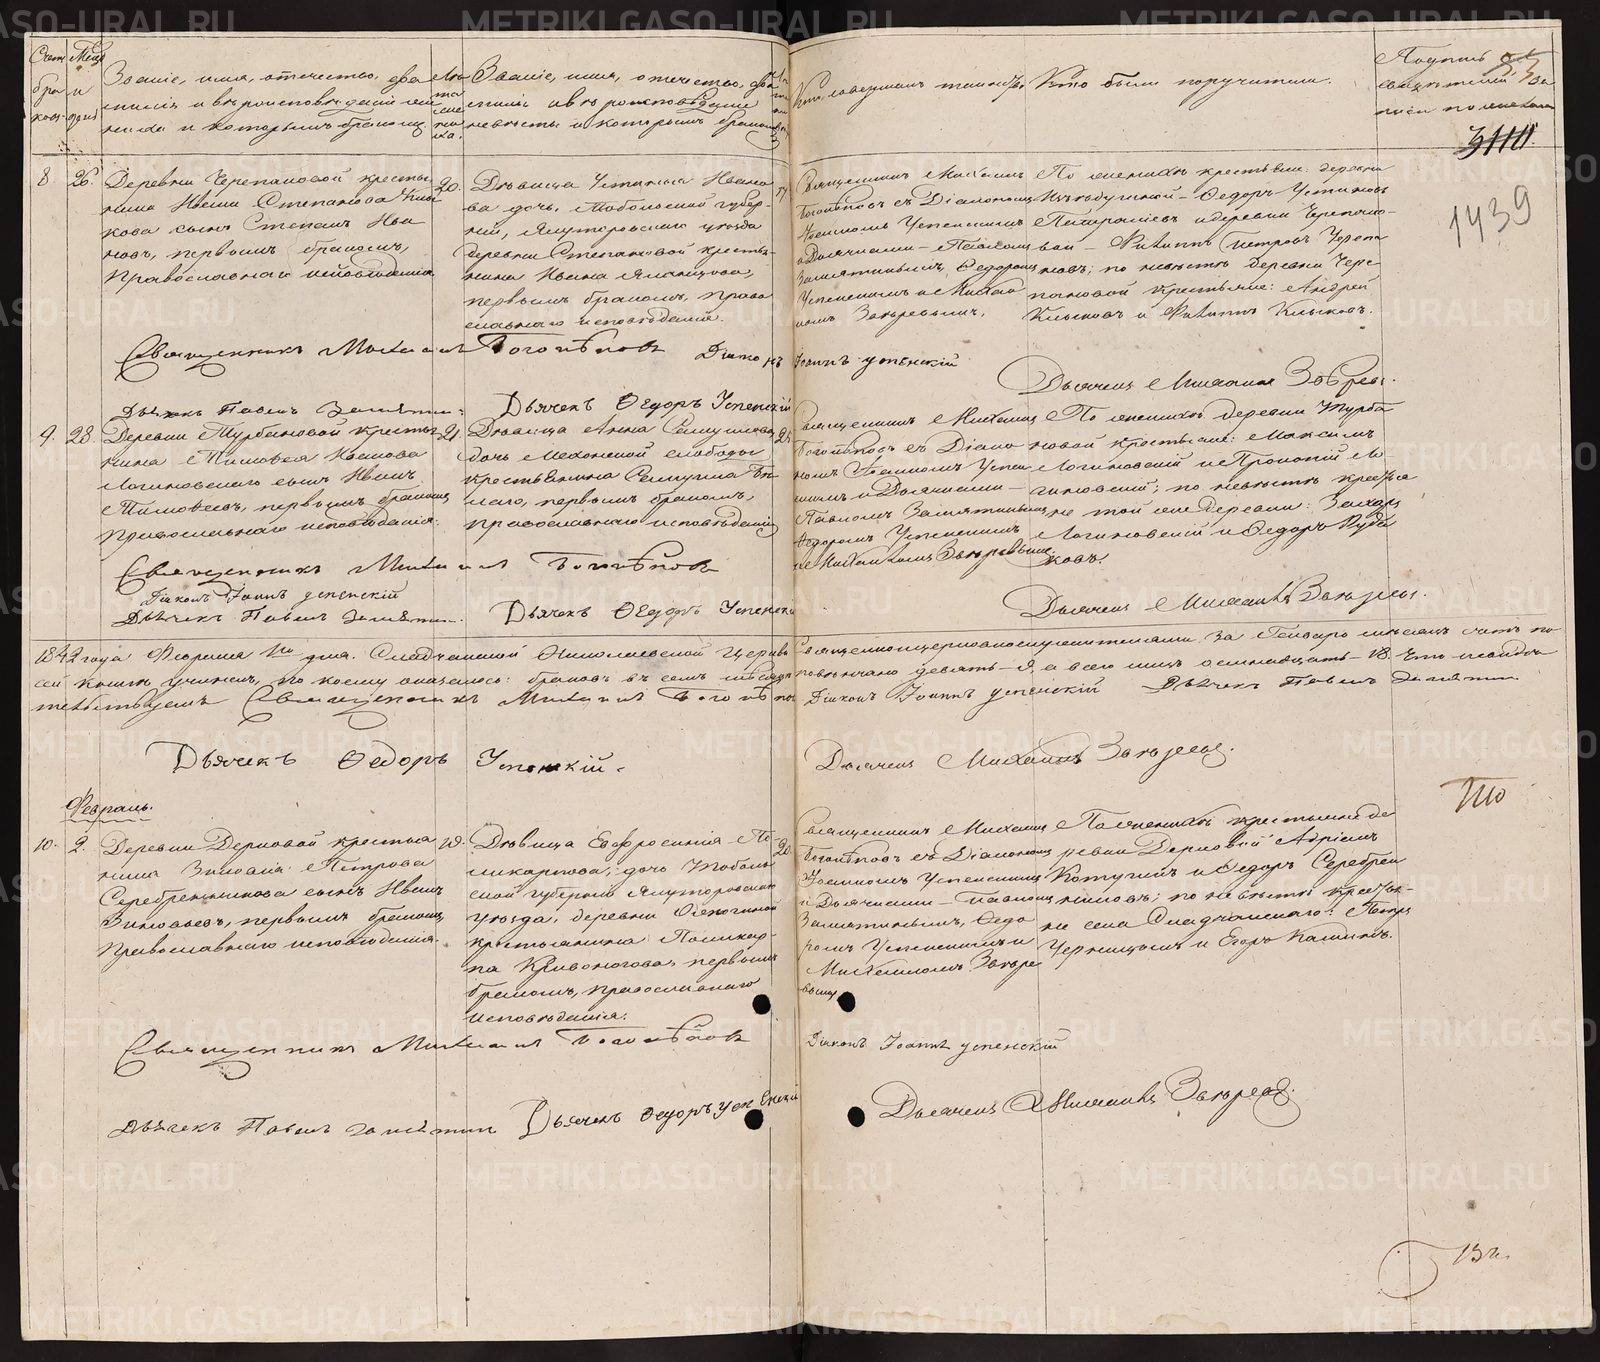 METRIKI.GASO-URAL.RU
Счетъ браковъ
Мѣсяцъ и день
Званіе, имя, отчество, фамилія и вѣроисповѣданіе жениха и которымъ бракомъ.
Лѣта жениха.
Званіе, имя, отечество, фамилія и вѣроисповѣданіе невѣсты и которымъ бракомъ
Кто совершалъ таинство
Кто были поручители.
Подпись свидѣтелей записи по желанію
1439
8
26.
Деревни Черепановой крестья
нина Ивана Степанова Клы
кова сынъ Степанъ Ива
новъ, первымъ бракомъ,
Православнаго исповѣданія
20.
Дѣвица Устинья Ивано
ва дочь, Тобольской губер
ніи, Ялуторовскаго уѣзда
деревни Степановой крестья
нина Ивана
первымъ бракомъ, право
славнаго исповѣданія.
Священникъ Михаилъ
Боголѣповъ съ Діакономъ
Іоанномъ Успенскимъ
и Дьячками Павломъ
Замятинымъ, Федоромъ
Успенскимъ и Михаи
ломъ
По женихѣ крестьяне: деревни
Федоръ Устиновъ
и деревни Черепано
вой Филиппъ Петровъ Черепа
новъ; по невѣстѣ деревни Чере
пановой крестьяне: Андрей
Клыковъ и Филиппъ Клыковъ.
Священникъ Михаилъ Боголѣповъ Діаконъ Іоаннъ Успенскій
Дьячекъ Михаилъ
Дьячекъ Павелъ Замятинъ
Дьячекъ Ѳедоръ Успенскій
9.
28.
Деревни Журбановой крестья
нина Тимофея
Логиновскаго сынъ Иванъ
Тимофеевъ, первымъ бракомъ
Православнаго исповѣданія.
21.
Дѣвица Анна Самуилова
дочь Мехонской слободы
крестьянина Самуила Бѣ
лаго, первымъ бракомъ,
православнаго исповѣданія
Священникъ Михаилъ
Боголѣповъ съ Діако
номъ Іоанномъ Успен
скимъ и Дьячками
Павломъ Замятинымъ
Федоромъ Успенскимъ
и Михаиломъ
По женихѣ деревни Журба
новой крестьяне: Максимъ
Логиновскій и Прокопій Ло
гиновскій; по невѣстѣ крестья
не той же деревни: Захаръ
Логиновскій и Федоръ
ковъ.
Священникъ Михаилъ Боголѣповъ
Діаконъ Іоаннъ Успенскій
Дьячекъ Павелъ Замятинъ
Дьячекъ Ѳедоръ Успенскій
Дьячекъ Михаилъ
1842 года Февраля 1го дня. Сладчанской Николаевской церкви Священноцерковнослужителями за Генварь мѣсяцъ счетъ по
сей книгѣ учиненъ, по коему оказалось: браковъ въ семъ мѣсяцѣ повѣнчано девять 9, а всего лицъ осмнадцать 18. Что и свидѣ
тельствуемъ Священникъ Михаилъ Боголѣповъ Діаконъ Іоаннъ Успенскій Дьячекъ Павелъ Замятинъ
Дьячекъ Ѳедоръ Успенскій.
Дьячекъ Михаилъ
Февраль.
10.
2.
Деревни Дерновой крестья
нина Зиновія Петрова
Серебренникова сынъ Иванъ
Зиновьевъ, первымъ бракомъ
Православнаго исповѣданія.
Дѣвица Евфросинія По
ликарпова; дочь Тоболь
ской губерніи Ялуторовскаго
уѣзда, деревни
крестьянина Поликар
па Кривоногова, первымъ
бракомъ, православнаго
исповѣданія.
20.
Священникъ Михаилъ
Боголѣповъ съ Діакономъ
Іоанномъ Успенскимъ
и Дьячками Павломъ
Замятинымъ, Федо
ромъ Успенскимъ и
Михаиломъ
вымъ
По женихѣ крестьяне де
ревни Дерновой Адріанъ
и Федоръ Серебрен
никовъ; по невѣстѣ крестья
не села Сладчанскаго: Петръ
и Егоръ
Священникъ Михаилъ Боголѣповъ
Діаконъ Іоаннъ Успенскій
Дьячекъ Павелъ Замятинъ
Дьячекъ Ѳедоръ Успенскій
Дьячекъ Михаилъ